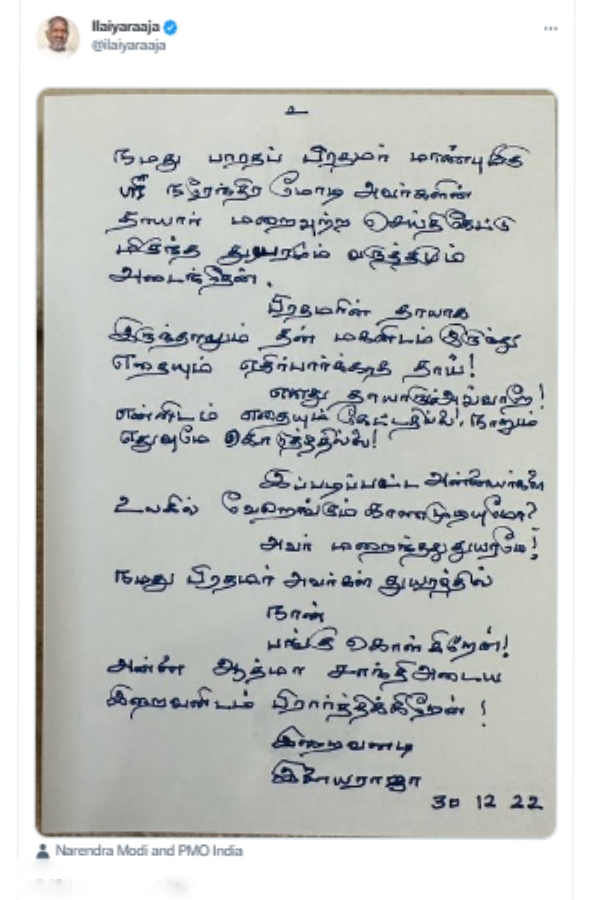 Ilaiyaraaja
@ilaiyaraaja
உ
நமது பாரதப் பிரதமர் மாண்புமிகு
ஸ்ரீ நரேந்திர மோடி அவர்களின்
தாயார் மறைவுற்ற செய்தி கேட்டு
மிகுந்த துயரமும் வருத்தமும்
அடைந்தேன்.
பிரதமரின் தாயாக
இருந்தாலும் தன் மகனிடம் இருந்து
எதையும் எதிர்பார்க்காத தாய்!
எனது தாயாரும் அவ்வாறே!
என்னிடம் எதையும் கேட்டதில்லை. நானும்
எதுவுமே கொடுத்ததில்லை!
இப்படிப்பட்ட அன்னையர்களை
உலகில் வேறெங்கும் காணமுடியுமோ?
அவர் மறைந்தது துயரமே!
நமது பிரதமர் அவர்கள் துயரத்தில்
நான்
பங்கு கொள்கிறேன்!
அன்னை ஆத்மா சாந்தி அடைய
இறைவனிடம் பிரார்த்திக்கிறேன் !
இறைவனடி
இளையராஜா
30 12 22
Narendra Modi and PMO India